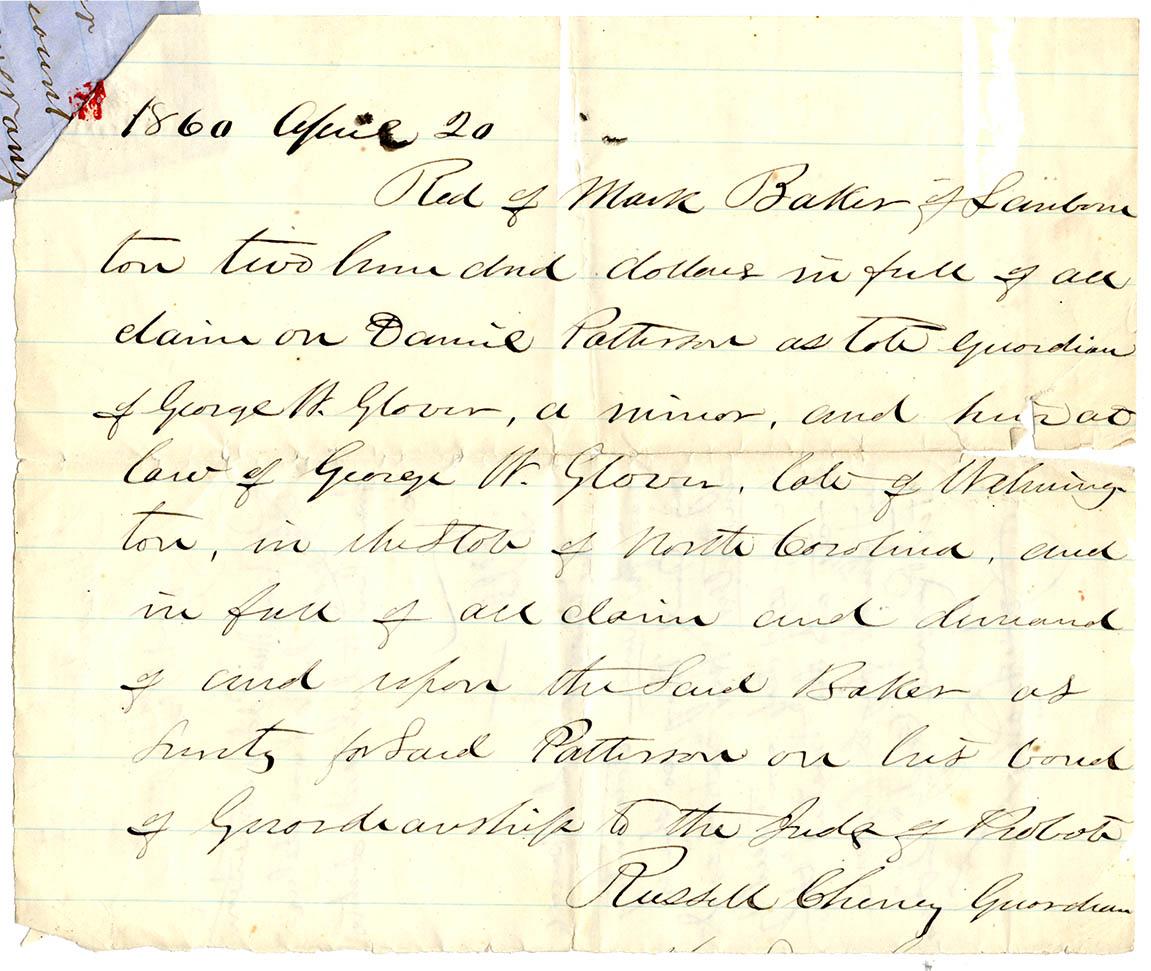 count
1860 April 20
Recd of Mark Baker of Sanborn
ton two hundred dollars in full of all
claim on Daniel Patterson as late Guardian
of George W. Glover, a minor, and heir at
law of George W. Glover, late of Wilming-
ton, in the State of North Carolina, and
in full of all claim and demand
of and upon the said Baker as
surety for said Patterson on his bond
of Guardianship to the Judge of Probate
Russell Cheney Guardian